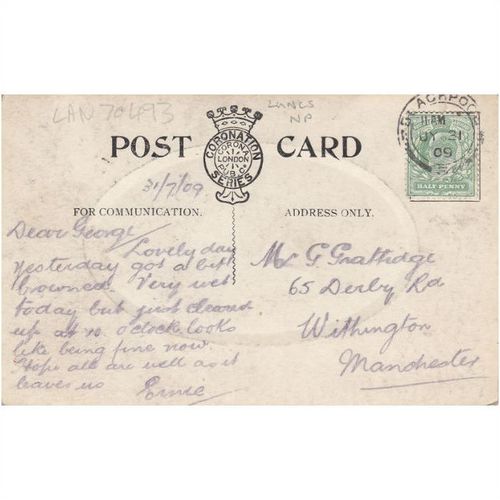 LAN70493
LANCS
NP
POST CARD
CORONATION
CORONA
LONDON
SERIES
BLACKPOOL
11 AM
JY 31
09
HALFPENNY
31/7/09
FOR COMMUNICATION.
ADDRESS ONLY.
Dear George
Lovely day
yesterday got a bit
browned. Very wet
today but just cleared
up at 10. o'clock looks
like being fine now.
Hope all are well as it
leaves us
Ernie
Mr G Grattidge
65 Derby Rd
Withington
Manchester